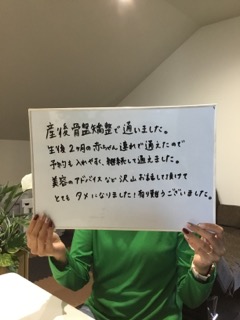 産後骨盤矯整で通いました。
生後2ヶ月の赤ちゃん連れで通えたので
予約も入れやすく、継続して通えました。
美容のアドバイスなど沢山お話して頂けて
とても タメになりました！有り難うございました。